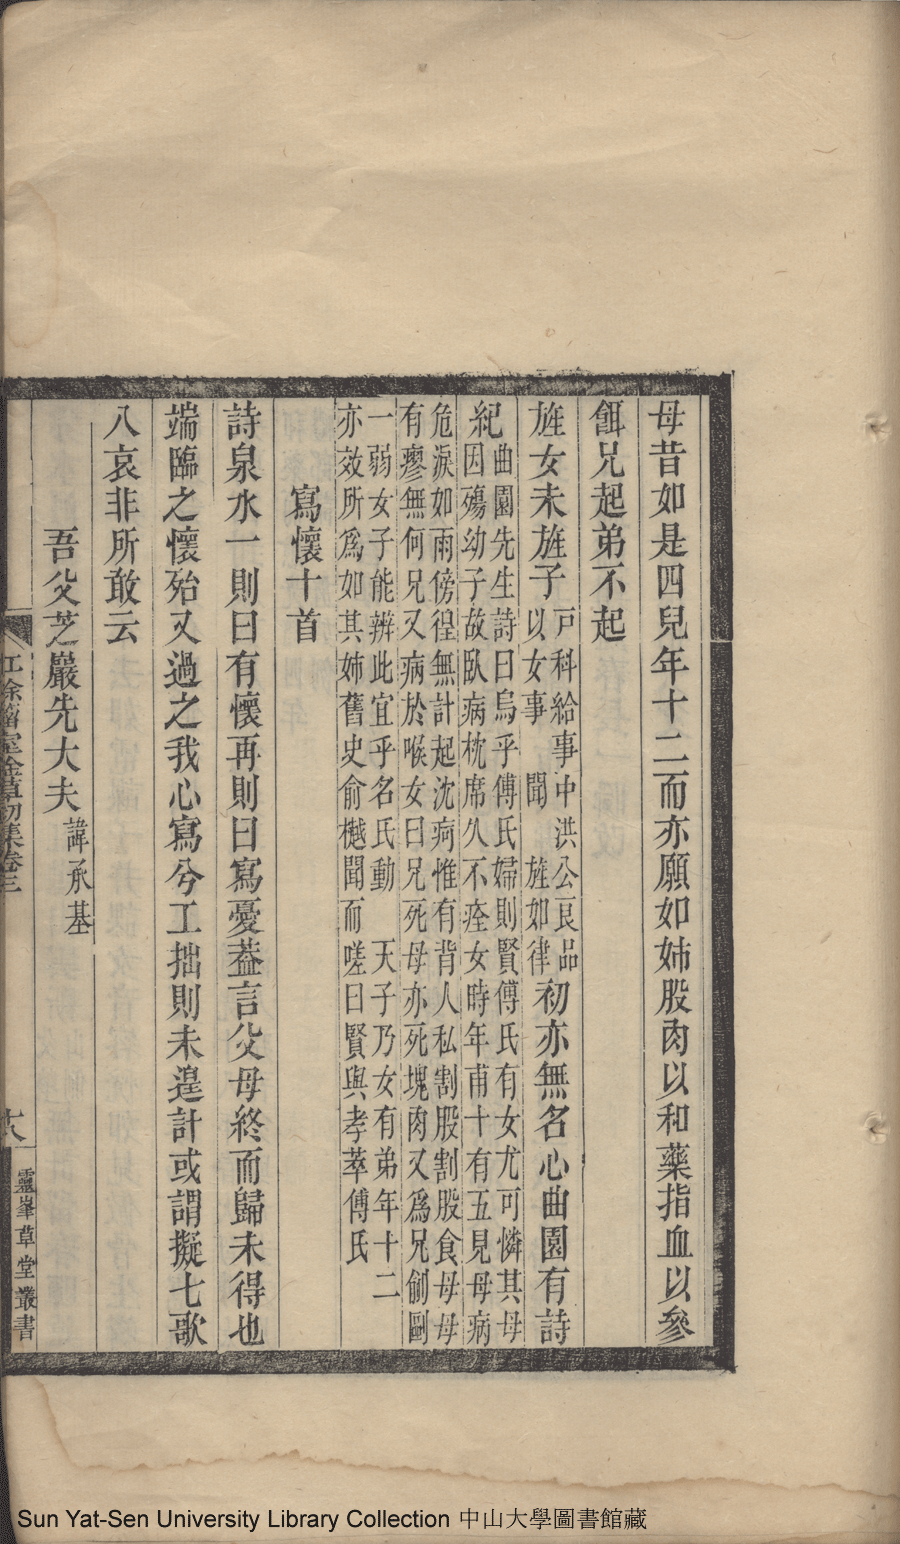 母昔如是四兒年十二而亦願如姊股肉以和藥指血以參
餌兄起弟不起
旌女未旌子戶科給事中洪公良品
以女事 聞 旌如律初亦無名心曲園有詩
紀曲園先生詩曰烏乎傅氏婦則賢傅氏有女尤可憐其母
因殤幼子故臥病枕席久不痊女時年甫十有五見母病
危淚如雨傍徨無計起沈疴惟有背人私割股割股食母母
有瘳無何兄又病於喉女曰兄死母亦死塊肉又為兄劊剾
一弱女子能辨此宜乎名氏動 天子乃女有弟年十二
亦效所為如其姊舊史俞樾聞而嗟曰賢與孝萃傅氏
寫懷十首
詩泉水一則曰有懷再則曰寫憂葢言父母終而歸未得也
端臨之懷殆又過之我心寫兮工拙則未遑計或謂擬七歌
八哀非所敢云
吾父芝巖先大夫諱承基
室金草初集卷三
十八
靈峯草堂叢書
Sun Yat-Sen University Library Collection 中山大學圖書館藏